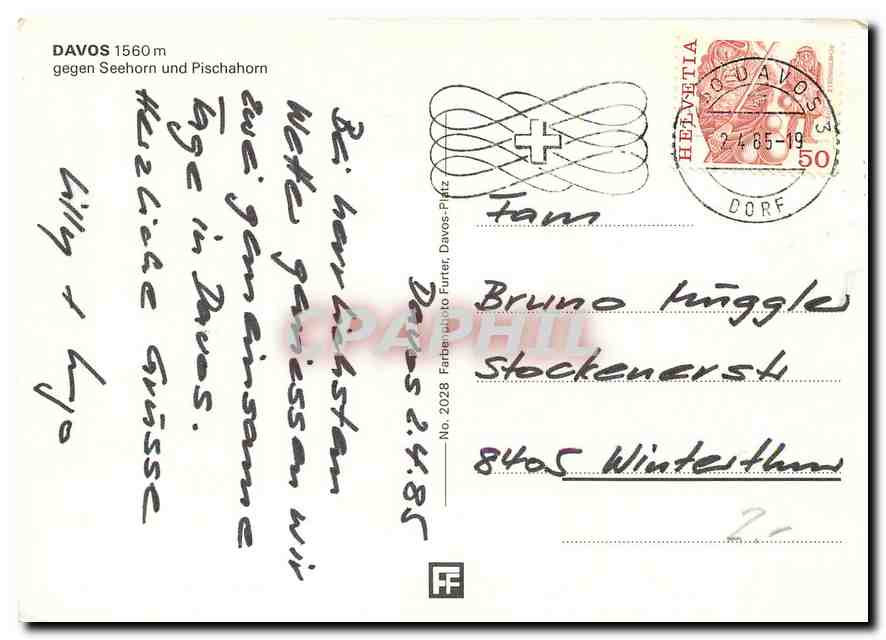 DAVOS 1560 m
gegen Seehorn und Pischahorn
Davos 2.4.85
Bei herrlichstem
Wette geniessen wir
zwei gemeinsame
Tage in Davos.
Herzliche Grüsse
Lilly + Hugo
No. 2028 Farbenphoto Furter, Davos-Platz
HELVETIA
50
DAVOS 3
2.4.85-19
DORF
Fam
Bruno Müggler
Stockenerstr
8405 Winterthur
2.-
FF
CPAPHIL